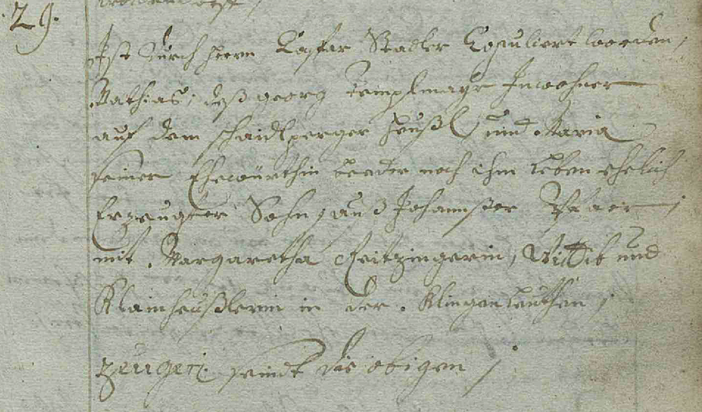 29.
Ist durch herrn Caspar Stadler Copuliert worden,
Mathias, deß georg Templmayr Inwohner
auf dem schaidlperger heußl und Maria
seiner Ehewürthin beeder noch im Leben ehelich
Erzeugter Sohn, auß Johannser Pfarr,
mit Margaretha Zeitzingerin, Wittib und
Klainheußlerin in der Klingenleuthen,
Zeugen seindt die obigen /